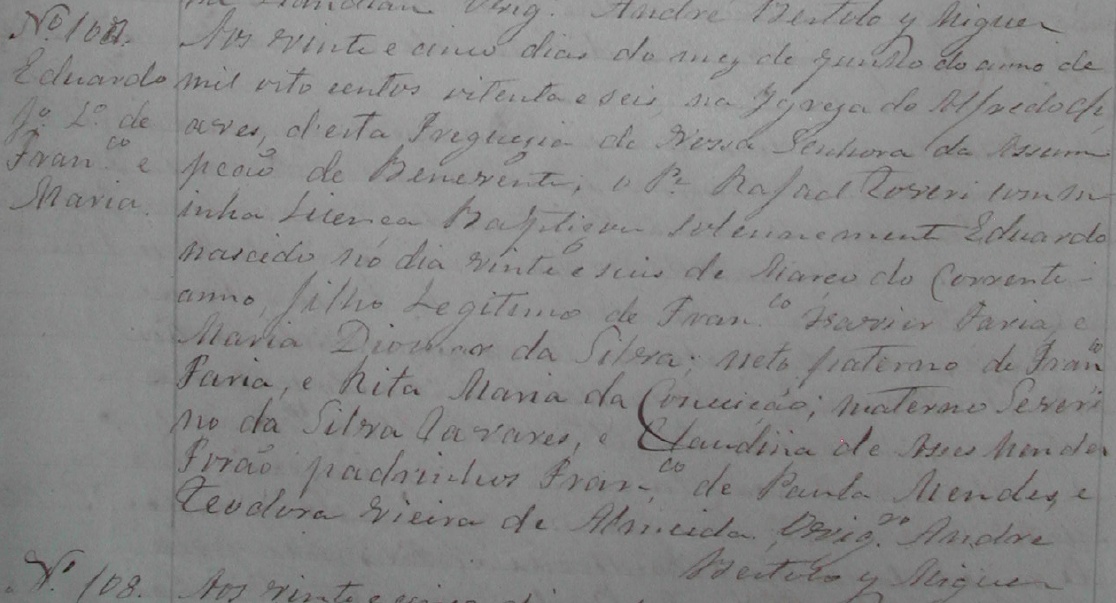 Vrig. André Bertolo y Miguer
Nº 107.
Eduardo
fº. Lº. de
Fran.co e
Maria.
Aos vinte e cinco dias do mez de Junho do anno de
mil oito centos oitenta e seis, na Ygreja do Alfredo Ch
aves, d'esta Freguezia de Nossa Senhora da Assum
pcaõ de Benevente, o Pe. Rafael Torreri com m
inha Licenca Baptizou solennemente Eduardo
nascido nó dia vinte e seis de Marco do Corrente
anno, filho Legitimo de Fran.co Xavier Faria, e
Maria Diomar da Silva; neto paterno de Fran.co
Faria, e Rita Maria da Conceição; materno Severi
no da Silva Tavares, e Claudina de Asses Mendes
Forão padrinhos Fran.co de Paula Mendes, e
Teodora Vieira de Almeida. Vrig.ro Andre
Bertolo y Miguer
Nº 108. Aos vinte e cinco di